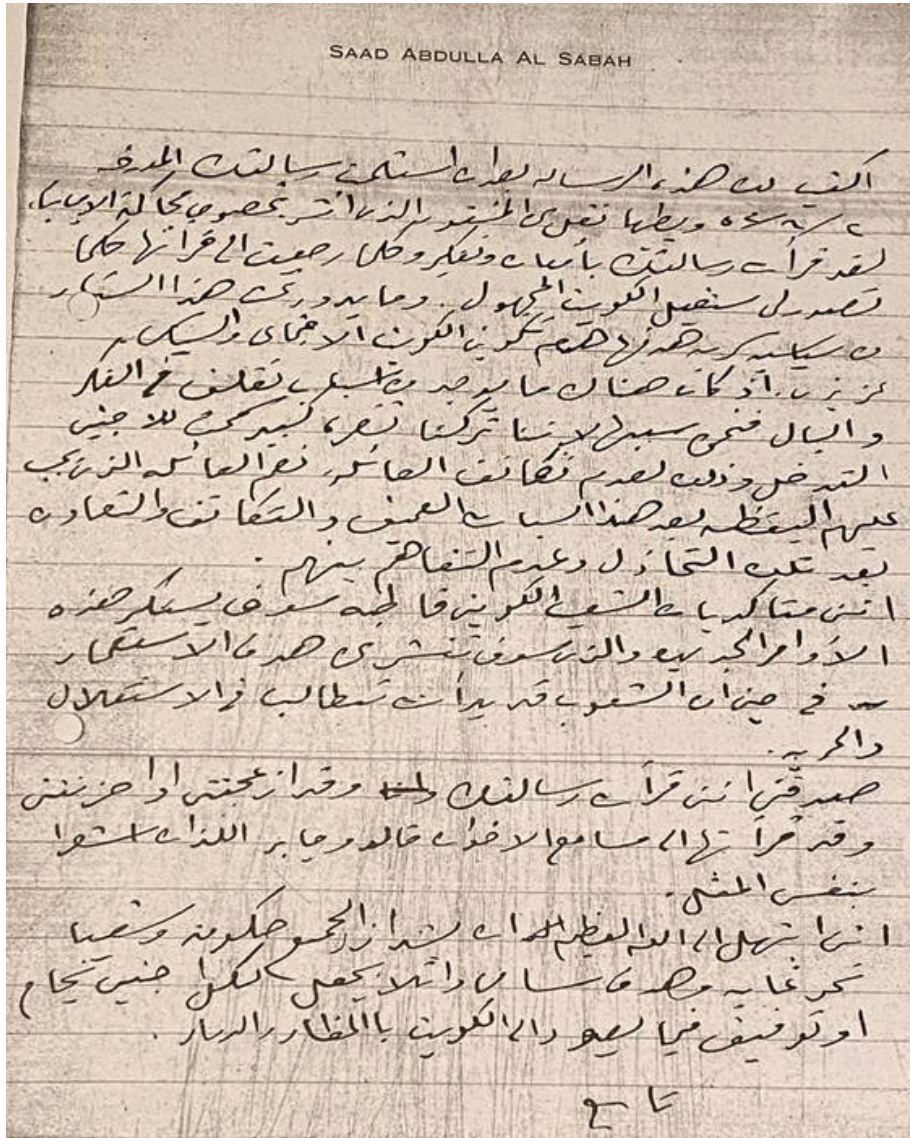 SAAD ABDULLA AL SABAH
اكتب لك هذه الرساله بعد ان استلمت رسالتك المورخه
وبطيها نص المنشور الذي انتشر بخصوص محاكمة الاجانب.
لقد قرأت رسالتك بأمعان وتفكير وكلما رجعت الى قرائتها كلما
تصور لي مستقبل الكويت المجهول. وما يدور تحت هذا الستار
من سياسيه كريهه هدفها هدم تكوين الكويت الاجتماعي والسياسي
عزيزي. اذ كان هناك ما يوجد من اسباب تقلق في الفكر
والبال فنحن سببها لاننا تركنا ثغره كبيره للاجنبي
التدخل وذلك لعدم تكاتف العائله. نعم العائله الذي يجب
عليهم اليقظه بعد هذا السبات العميق والتكاتف والتعاون
بعد ذلك التخاذل وعدم التفاهم بينهم.
انني متاكد بان الشعب الكويتي قاطبه سوف يستنكر هذه
الأوامر الجديده والذي سوف تنشر هدف الاستعمار
في حين ان الشعوب قد بدأت تطالب في الاستقلال
والحريه.
صدقني انني قرأت رسالتك وقد ازعجتني اذا حزنتني
وقد قرأتها الى مسامع الاخوان خالد وجابر اللذان شعرا
بنفس المثل.
انني ابتهل الى الله العظيم ان يشد ازر الجميع حكومة وشعبا
نحو غايه وهدف سامي وان لا يجعل لكل اجنبي نجاح
او توفيق فيما يعود الى الكويت بالمضار والدمار.
تابع